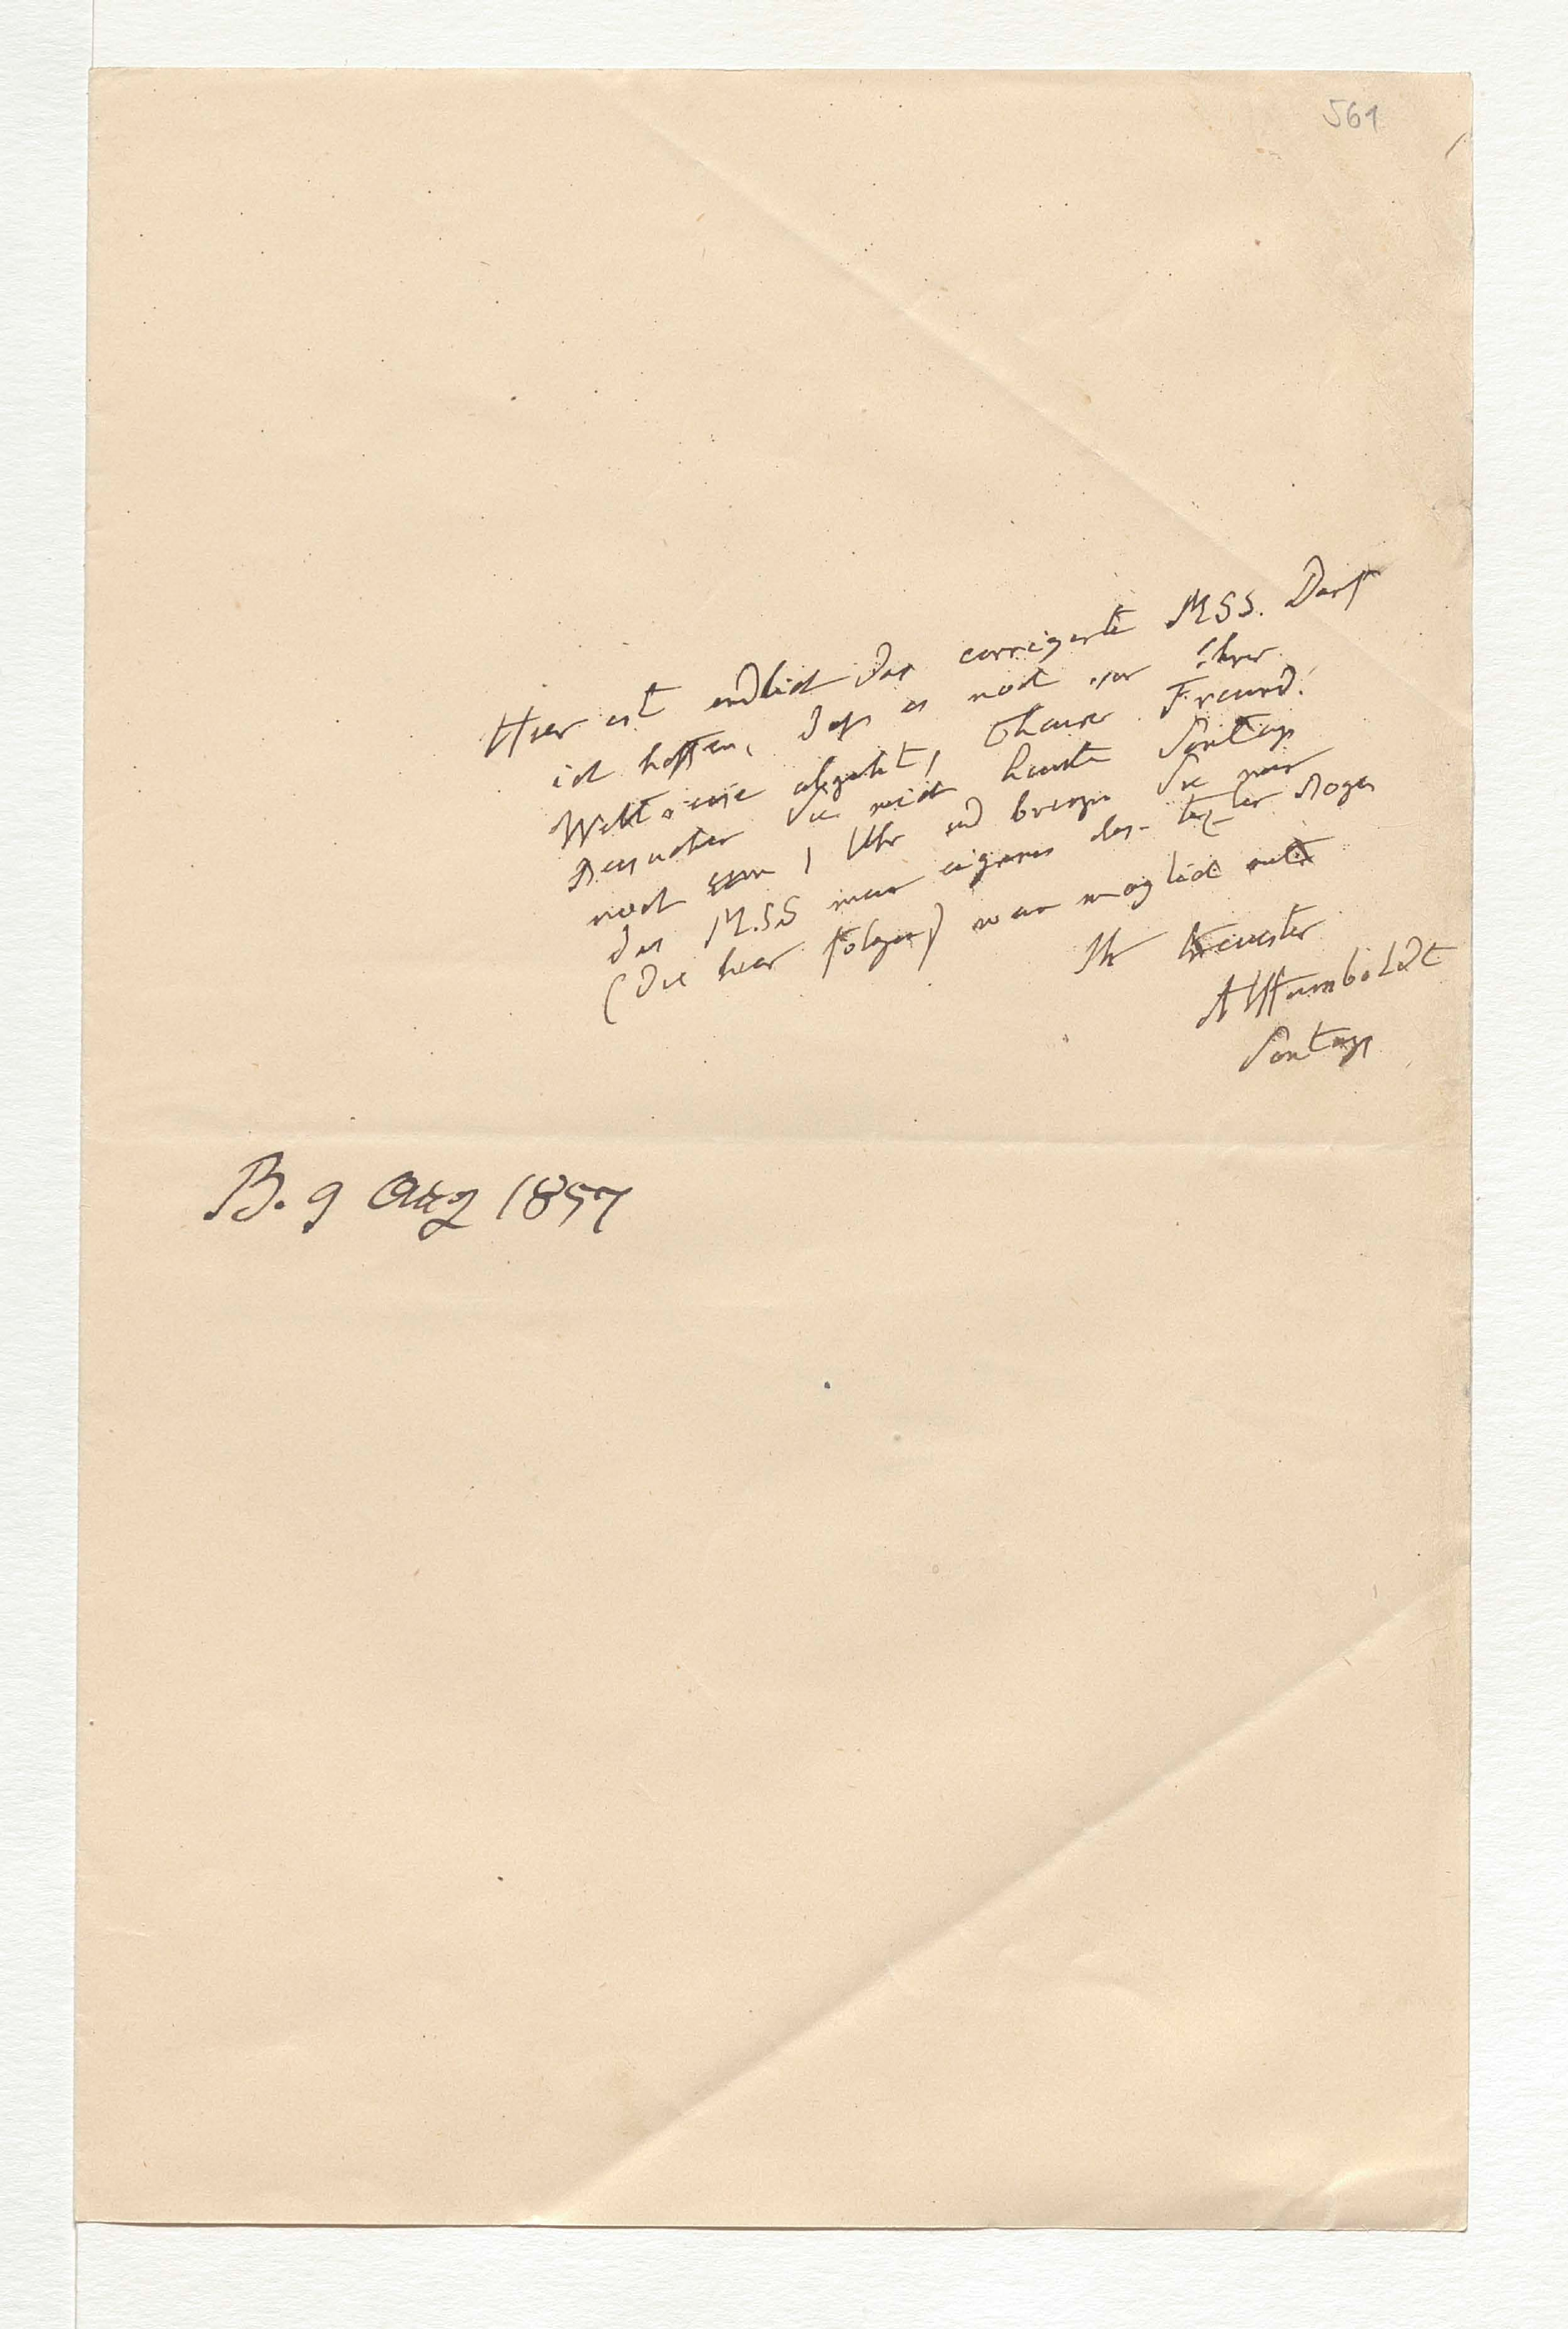 561
Hier ist endlich das corrigirte MSS. Darf
ich hoffen, daß es noch vor Ihrer
Weltreise abgeht, theurer Freund!
Besuchen Sie mich heute Sontag
noch um 1 Uhr und bringen Sie mir
das MSS mein eigenes des letzten Bogen
(die hier folgen) wo möglich mit
Ihr treuster
AvHumboldt
Sontag
B. 9 Aug 1857